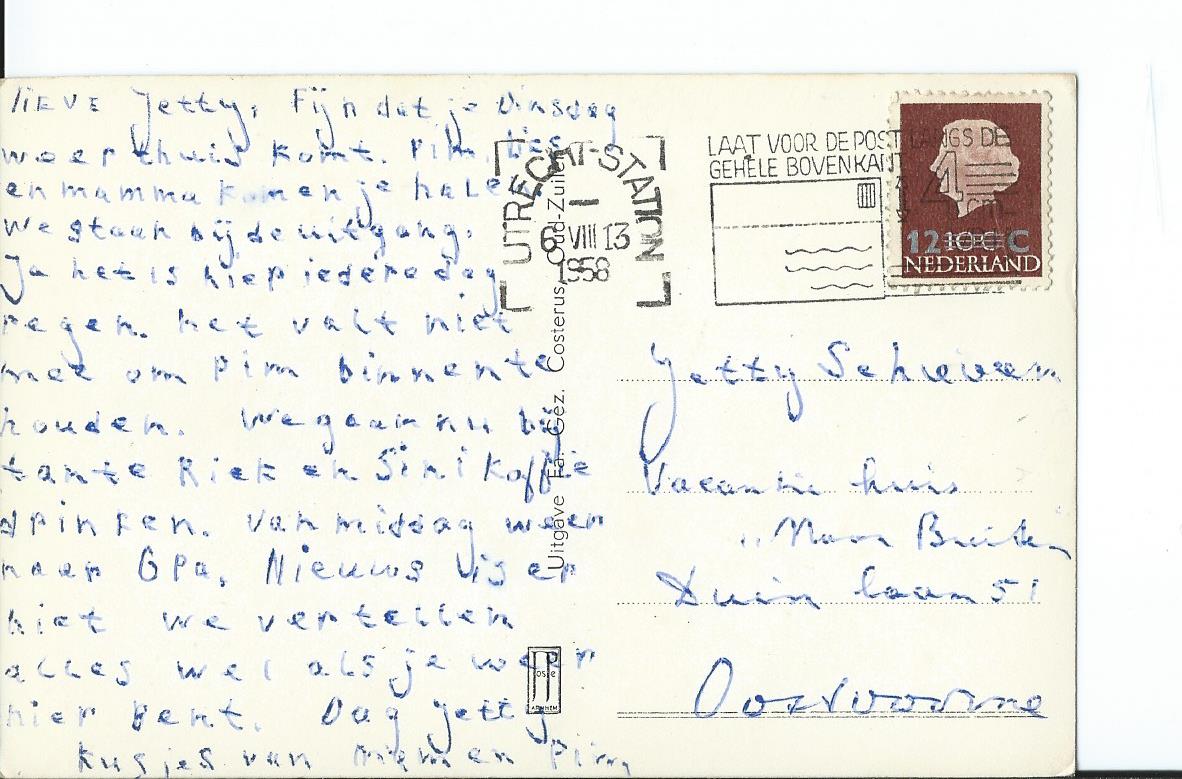 lieve Jetty, Fijn dat je Dinsdag
weer thuis komt. Pim,
en mamma komen je halen
We staan bij de uitgang.
Ja het is hier iedere dag
regen. het valt niet
mee om Pim binnen te
houden. We gaan nu bij
tante Riek en Sini koffie
drinken. van middag weer
naar Opa, Nieuws is er
niet we vertellen
alles wel als je weer
hier bent. Dag Jetty
kusjes van Mam en Pim
UTRECHT-STATION
6 VIII 13
1958
LAAT VOOR DE POST LANGS DE
GEHELE BOVENKANT
4
12 10 C C
NEDERLAND
Uitgave Fa. Gez. Costerus, Oud-Zuilen
Jetty Schreven
Vacantie huis
„Naar Buiten
Duin laan 51
Oostvoorne